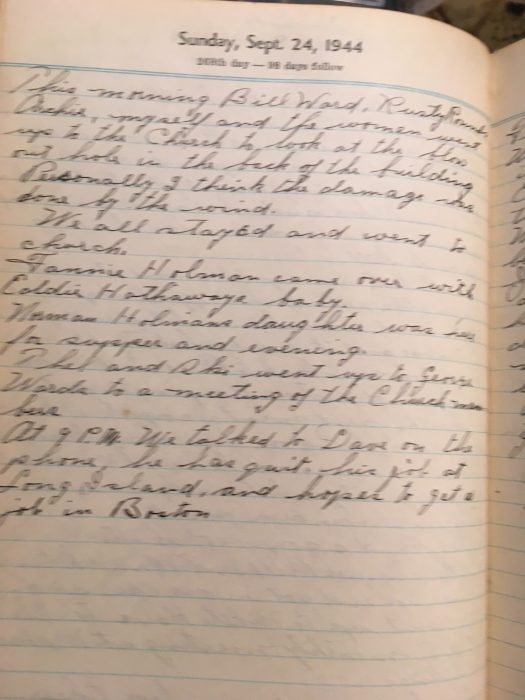 Sunday, Sept. 24, 1944
268th day — 98 days follow
This morning Bill Ward, Rusty
Archie, myself and the women went
up to the Church to look at the blow
out hole in the back of the building
Personally I think the damage was
done by the wind.
We all stayed and went to
church.
Fannie Holman came over with
Eddie Hathaways baby.
Norman Holmans daughter was here
for supper and evening.
Thel and Ski went up to George
Wards to a meeting of the Church mem
bers
At 9 P.M. We talked to Dave on the
phone, he has quit his job at
Long Island, and hopes to get a
job in Boston